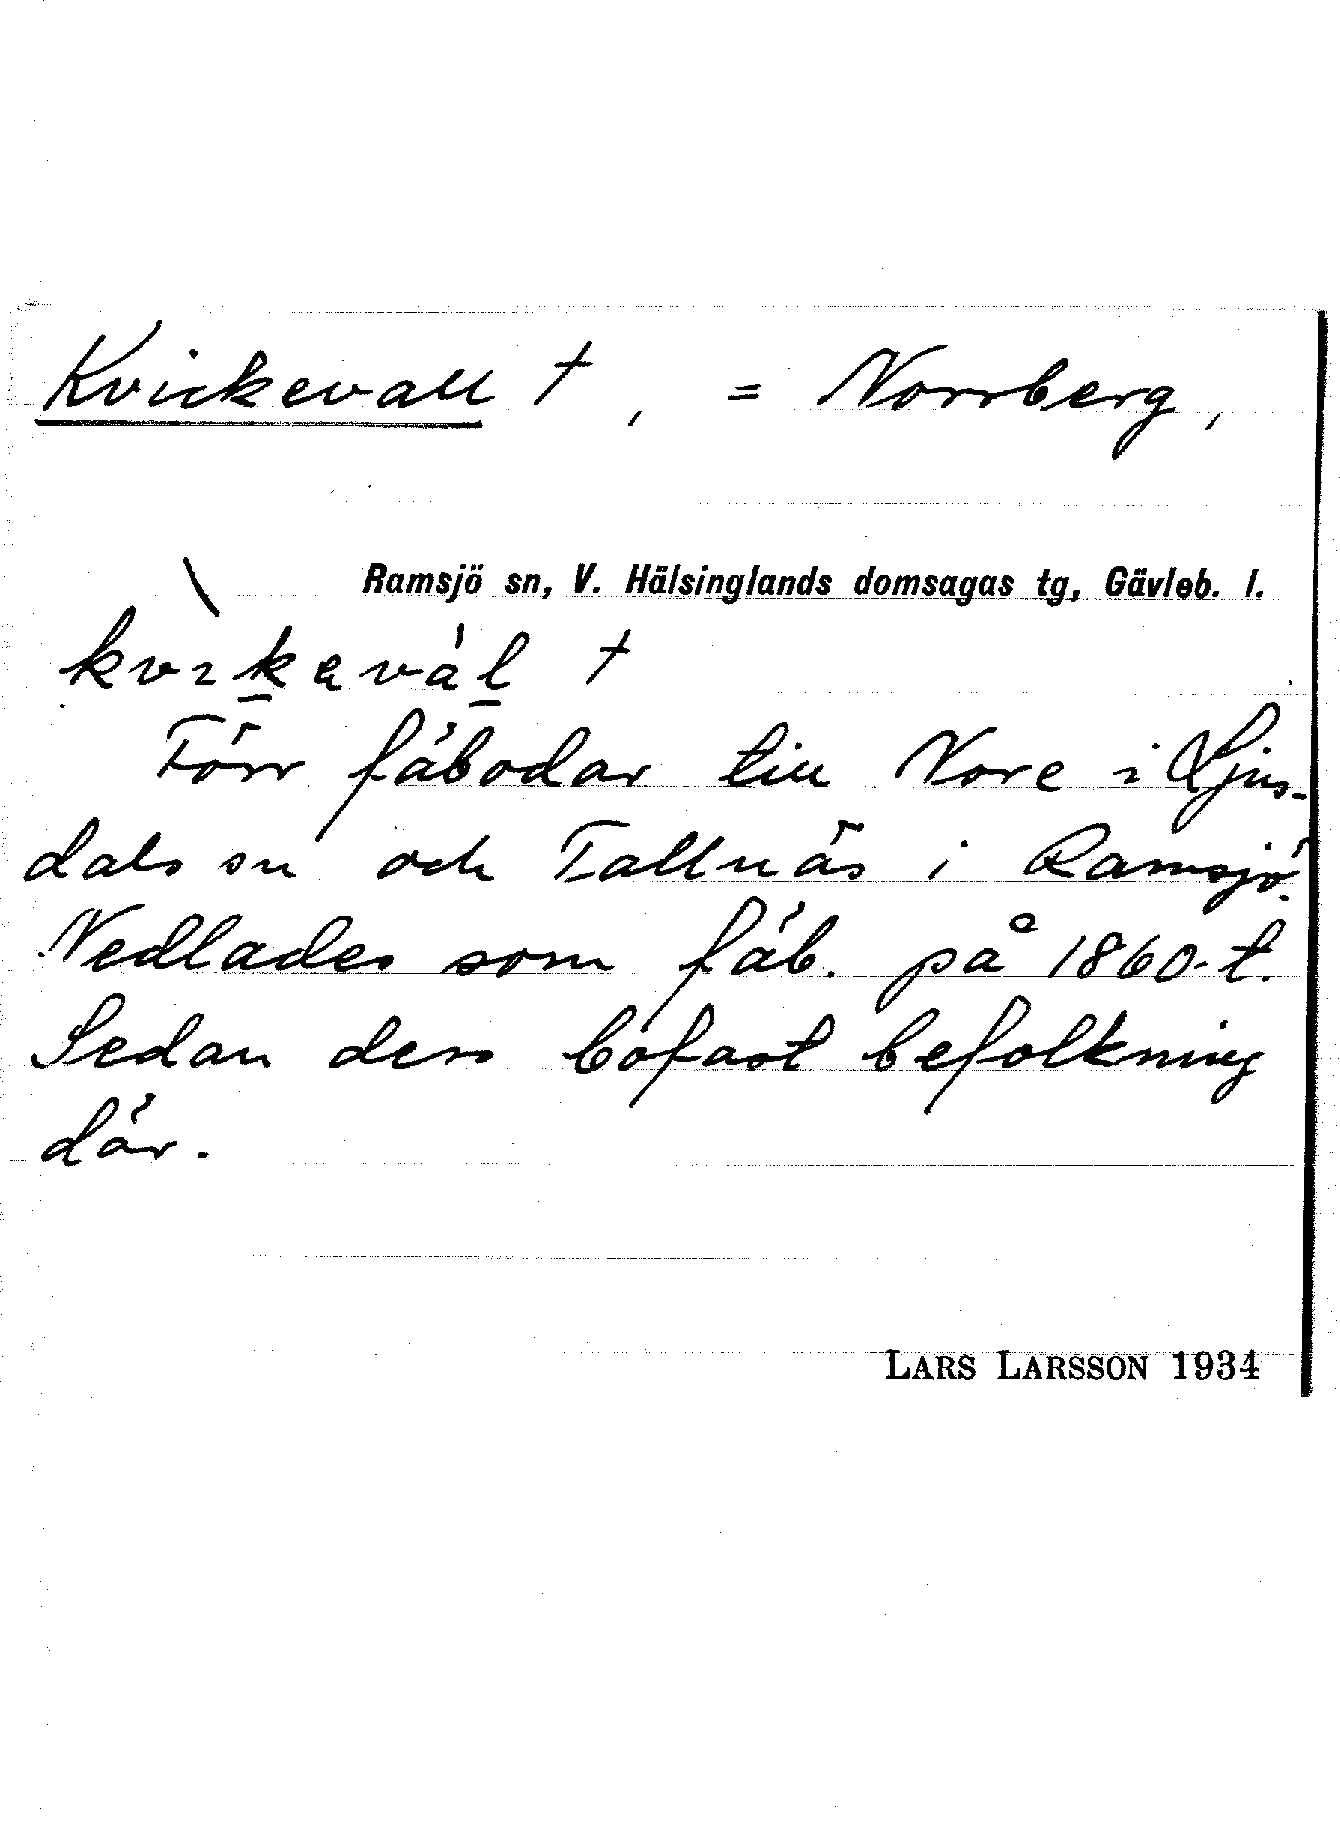 Kvickevall †, = Norrberg,
Ramsjö sn, V. Hälsinglands domsagas tg, Gävleb. l.
kvıkavàl †
Förr fäbodar till Nore i Ljus-
dals sn och Tallnäs i Ramsjö.
Nedlades som fäb. på 1860-t.
Sedan dess bofast befolkning
där.
LARS LARSSON 1934